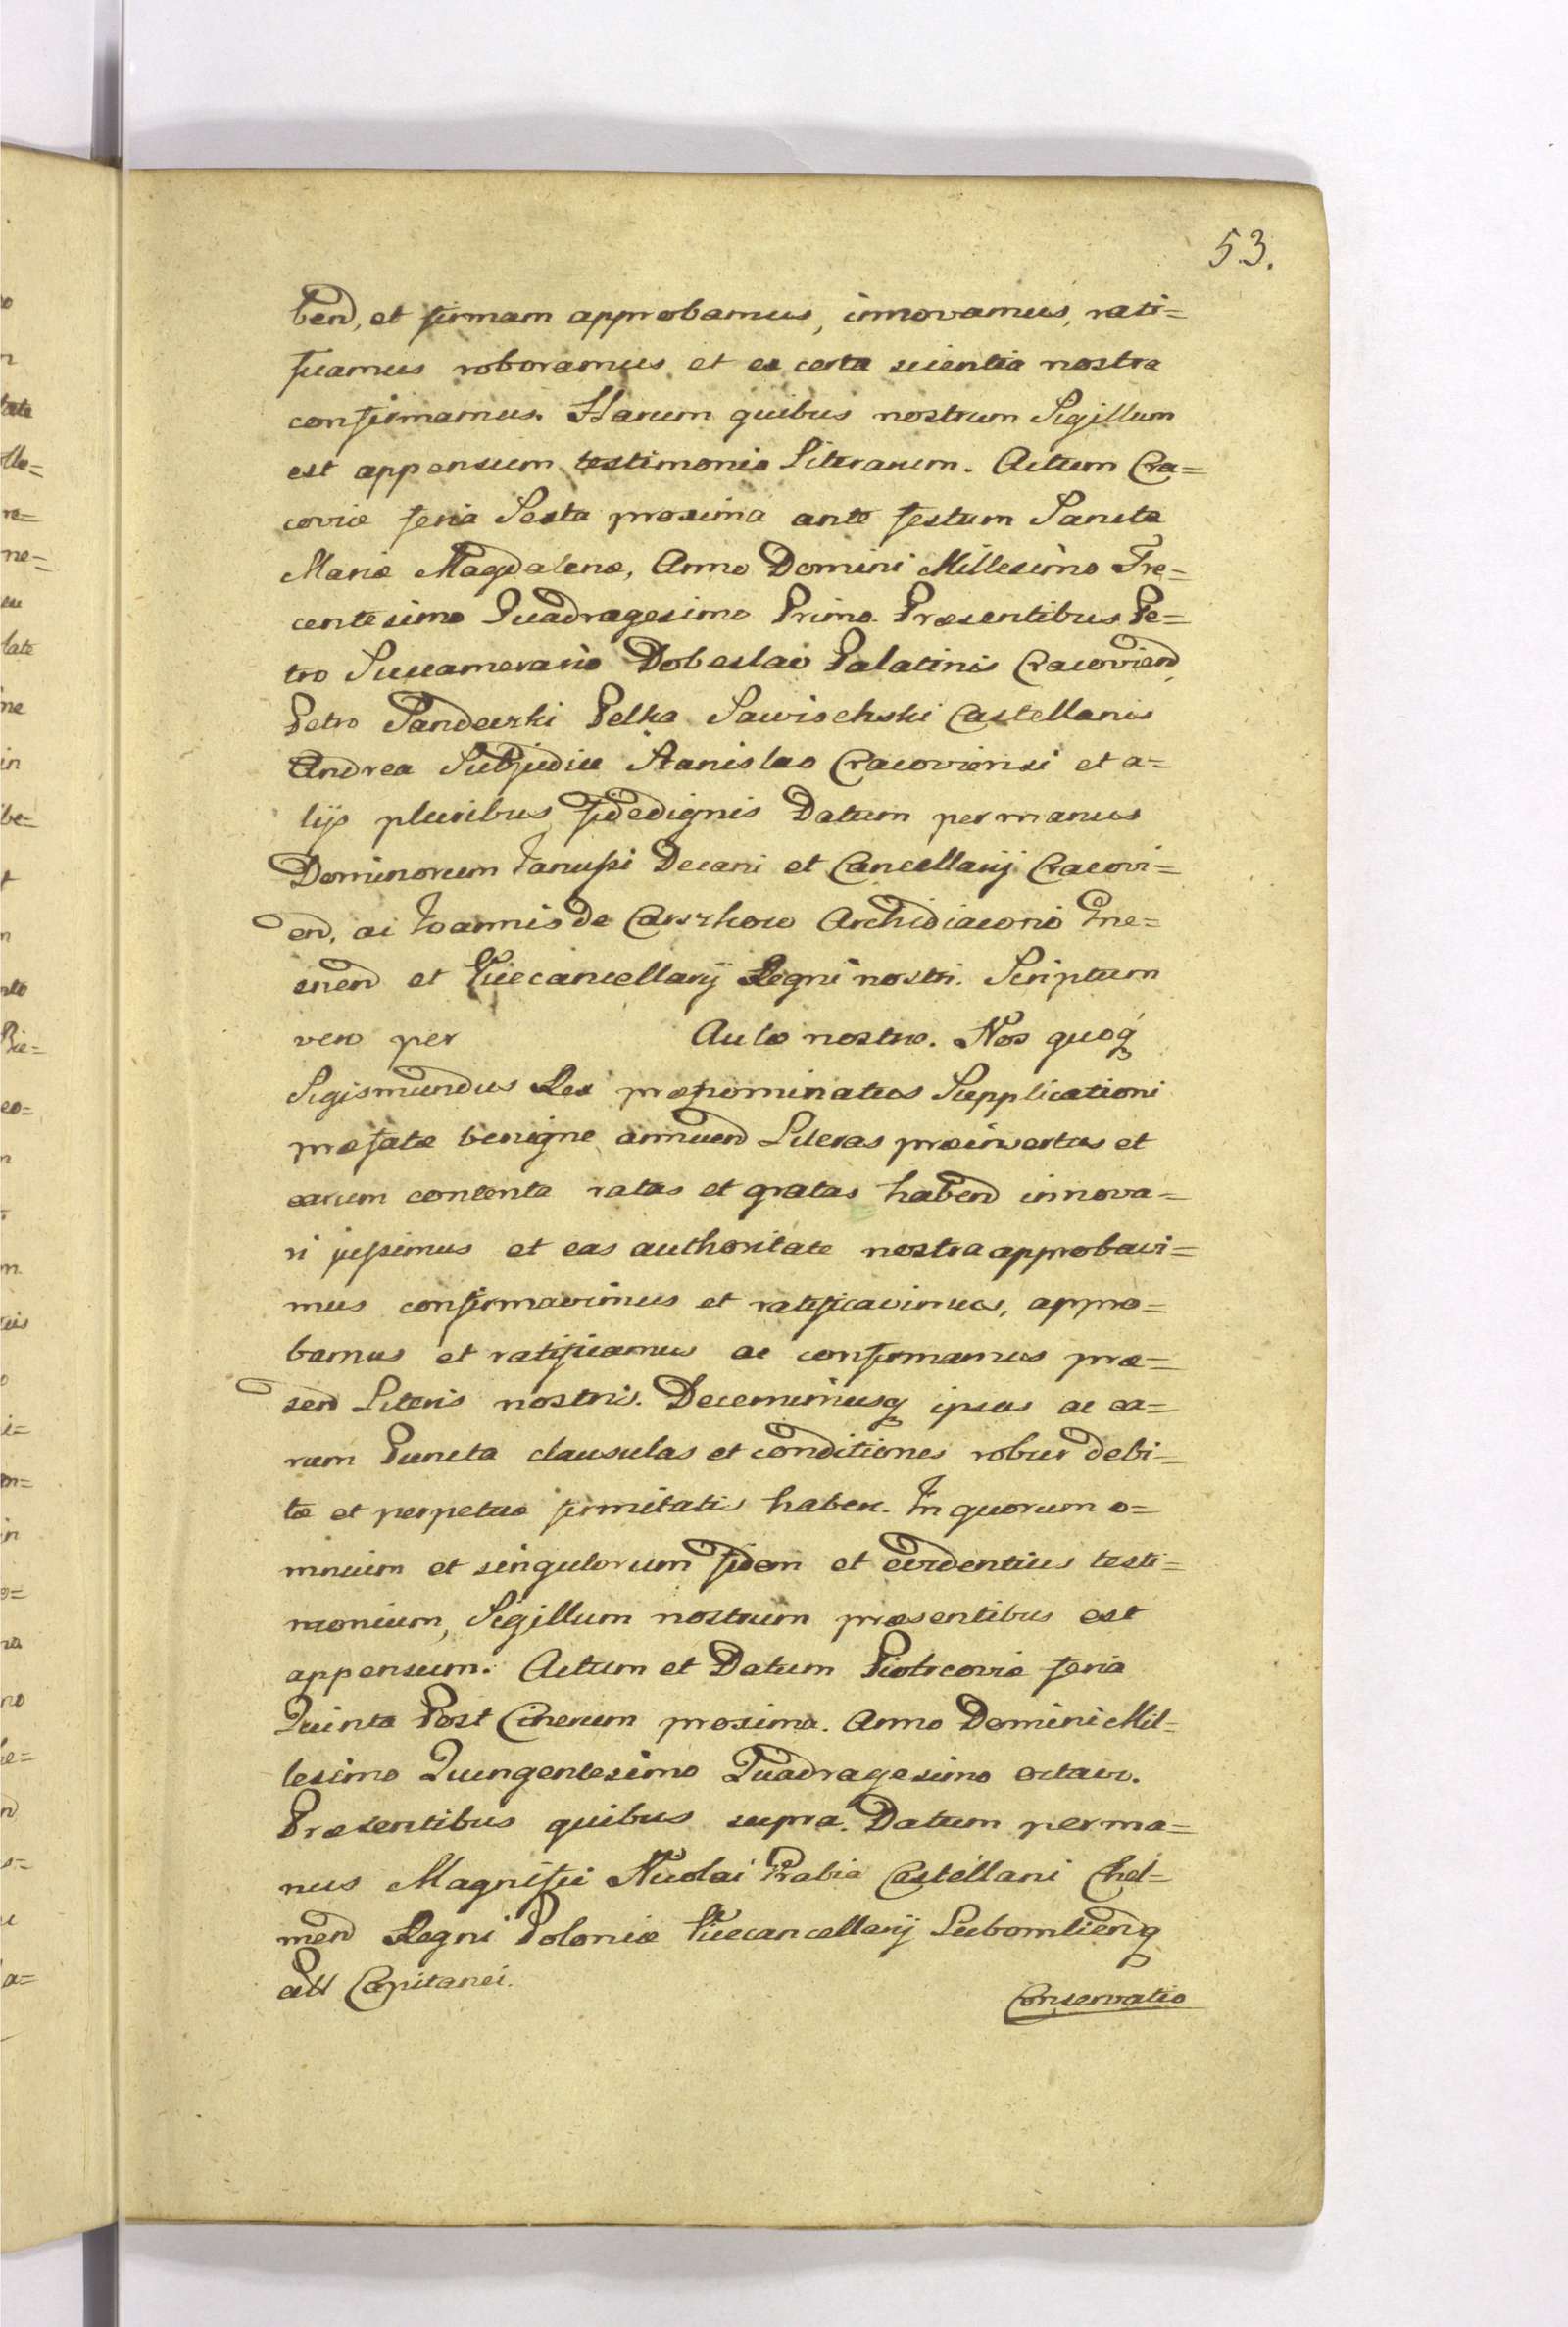 53.
bend, et firmam approbamus, innovamus, rati=
ficamus roboramus et ex certa scientia nostra
confirmamus. Harum quibus nostrum Sigillum
est appensum testimonio Literarum. Actum Cra=
coviæ feria Sexta proxima ante festum Sanctæ
Mariæ Magdalenæ, Anno Domini Millesimo Tre=
centesimo Quadragesimo Primo. Præsentibus Pe=
tro Succamerario Dobeslao Palatinis Cracoviend,
Petro Sandeczki Pelka Sawischski Castellanis
Andrea Subjudice Stanislao Cracoviensi et a=
lijs pluribus fidedignis Datum per manus
Dominorum Janussi Decani et Cancellarij Cracovi=
end, ac Joannis de Carszkow Archidiaconi Gne=
snend et Vicecancellarij Regni nostri. Scriptum
vero per Aulæ nostræ. Nos quoq
Sigismundus Rex prænominatus Supplicationi
præfatæ benigne annuend Literas præinsertas et
earum contenta ratas et gratas habend innova=
ri jussimus et eas authoritate nostra approbavi=
mus confirmavimus et ratificavimus, appro=
bamus et ratificamus ac confirmamus præ=
send Literis nostris. Decernimusq ipsas ac ea=
rum Puncta clausulas et conditiones robur debi=
tæ et perpetuæ firmitatis habere. In quorum o=
mnium et singulorum fidem et evidentius testi=
monium, Sigillum nostrum præsentibus est
appensum. Actum et Datum Piotrcoviæ feria
Quinta Post Cinerum proxima. Anno Domini Mil=
lesimo Quingentesimo Quadragesimo octavo.
Præsentibus quibus supra. Datum per ma=
nus Magnifici Nicolai Grabia Castellani Chel=
mend Regni Poloniæ Vicecancellarij Lubomliendq
Capitanei.
Conservatio